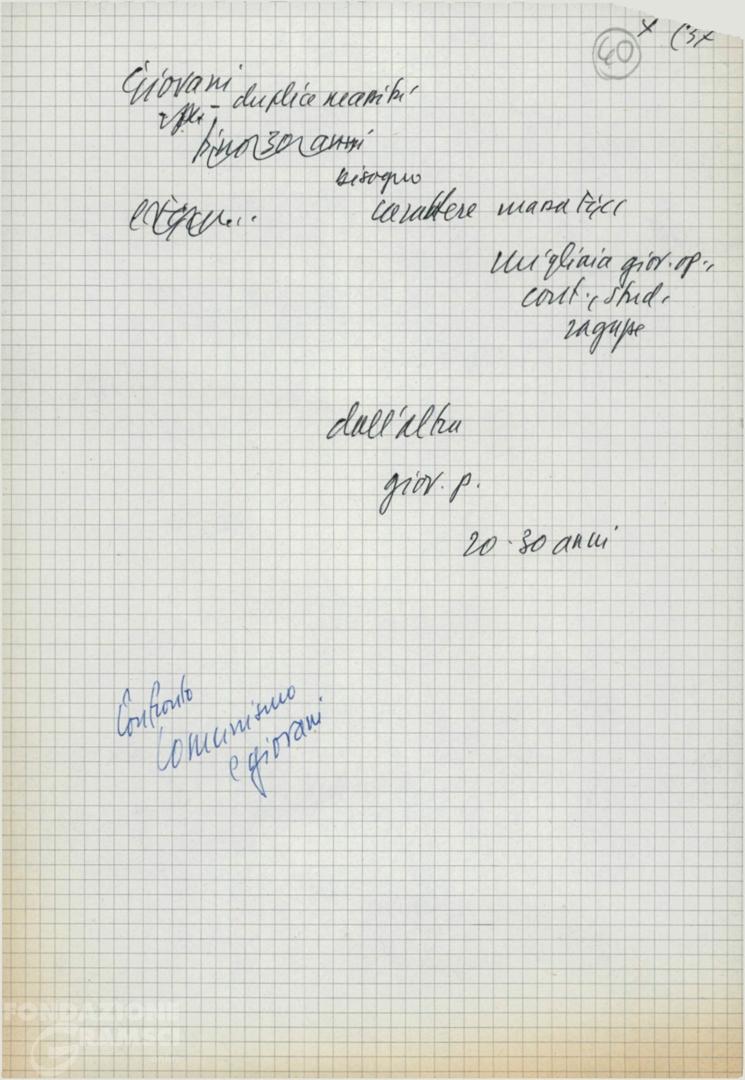 40
Giovani - duplice necessità
fino 30 anni
bisogno
carattere massa FGCI
migliaia giov. op.,
cont., stud.,
ragazze
dall'altra
giov. p.
20-30 anni
Confronto
Comunismo
e giovani
FONDAZIONE
GRAMSCI